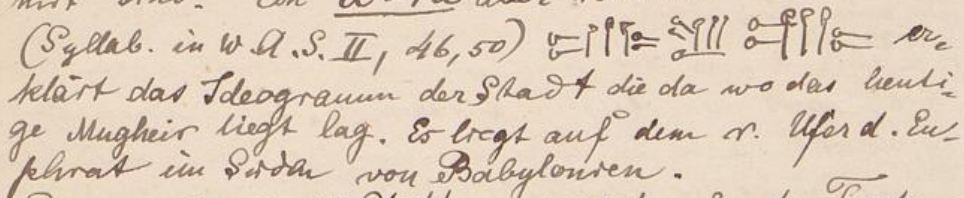 (Syllab. in W. A. S. II, 46,50) er-
klärt das Ideogramm der Stadt die da wo das heuti-
ge Mugheir liegt lag. Es liegt auf dem r. Ufer d. Eu-
phrat im Süden von Babylonien.